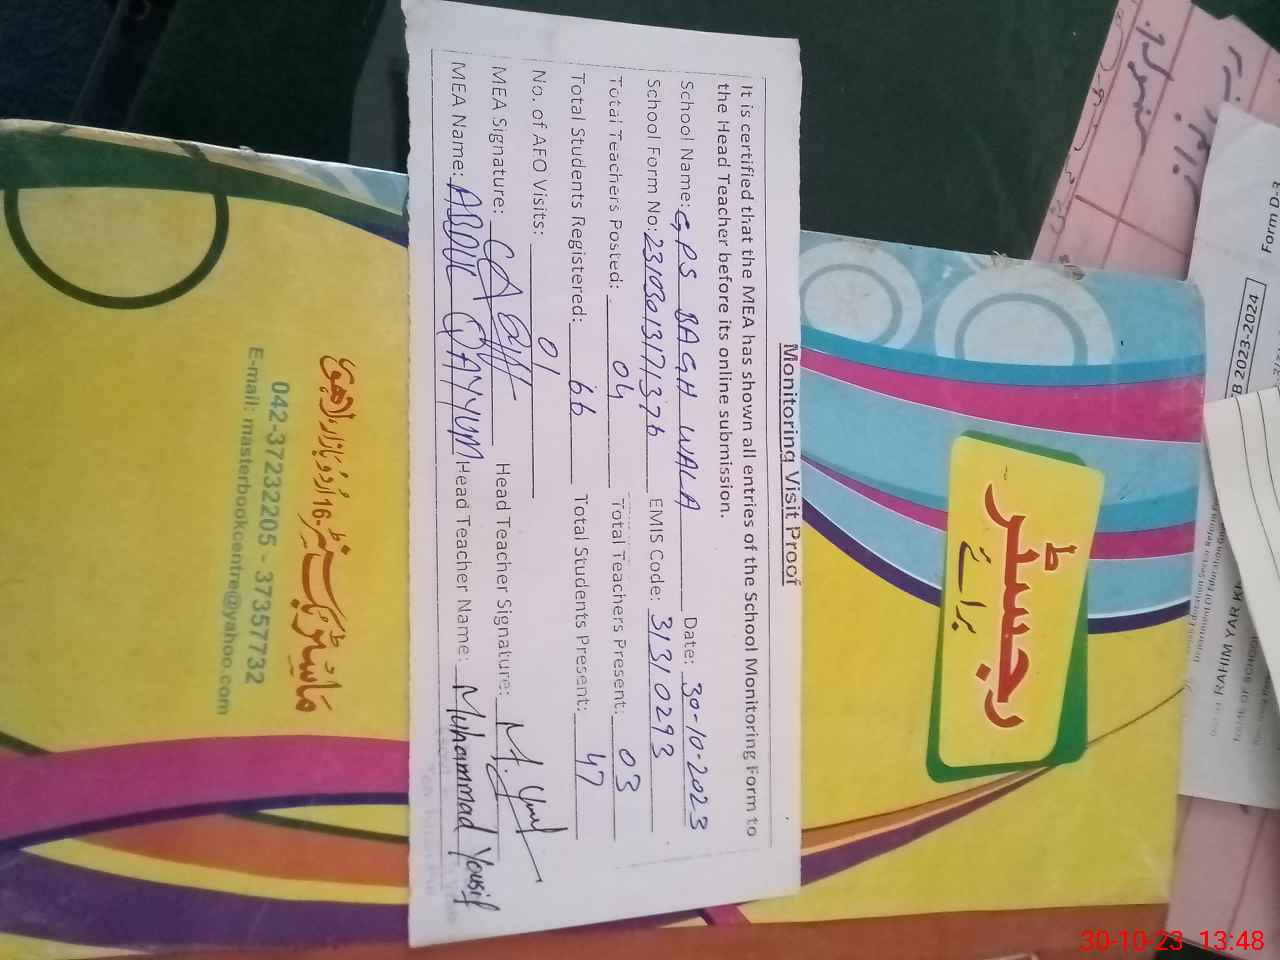 Monitoring Visit Proof
It is certified that the MEA has shown all entries of the School Monitoring Form to
the Head Teacher before its online submission.
School Name: GPS BAGH WALA Date: 30-10-2023
School Form No: 23103013171376 EMIS Code: 31310293
Total Teachers Posted: 04 Total Teachers Present: 03
Total Students Registered: 66 Total Students Present: 47
No. of AEO Visits: 01
MEA Signature: Head Teacher Signature: M.
MEA Name: ABDUL QAYYUM Head Teacher Name: Muhammad Yousif
رجسٹر
برائے
ماسٹر بک سنٹر 16-اردو بازار، لاہور
042-37232205 - 37357732
E-mail: masterbookcentre@yahoo.com
Form D-3
2023-2024
RAHIM YAR
OF SCHOOL
Department Of Education
30-10-23 13:48